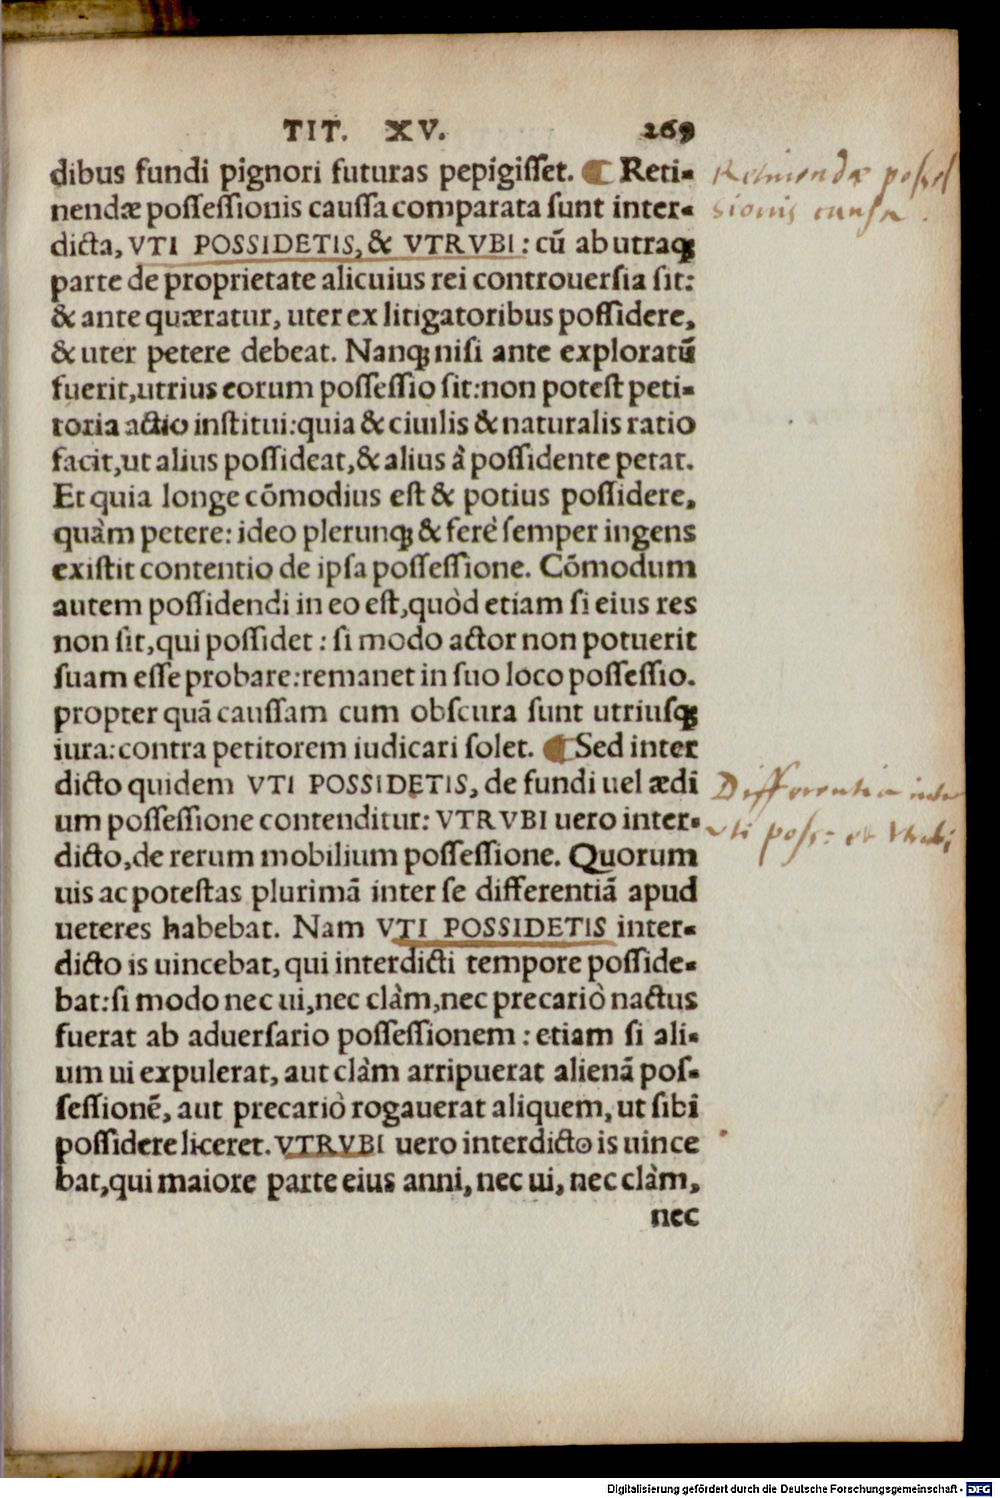 TIT. XV. 269
dibus fundi pignori futuras pepigisſet. ¶ Reti-
nendæ poſſeſſionis cauſſa comparata ſunt inter-
dicta, VTI POSSIDETIS, & VTRVBI: cū ab utraq;
parte de proprietate alicuius rei controuerſia ſit:
& ante quæratur, uter ex litigatoribus poſſidere,
& uter petere debeat. Nanq; niſi ante exploratū
fuerit, utrius eorum poſſeſſio ſit: non poteſt peti-
toria actio inſtitui: quia & ciuilis & naturalis ratio
facit, ut alius poſſideat, & alius à poſſidente petat.
Et quia longe cōmodius eſt & potius poſſidere,
quàm petere: ideo plerunq; & ferè ſemper ingens
exiſtit contentio de ipſa poſſeſſione. Cōmodum
autem poſſidendi in eo eſt, quòd etiam ſi eius res
non ſit, qui poſſidet: ſi modo actor non potuerit
ſuam eſſe probare: remanet in ſuo loco poſſeſſio.
propter quā cauſſam cum obſcura ſunt utriuſq;
iura: contra petitorem iudicari ſolet. ¶ Sed inter
dicto quidem VTI POSSIDETIS, de fundi uel ædi
um poſſeſſione contenditur: VTRVBI uero inter-
dicto, de rerum mobilium poſſeſſione. Quorum
uis ac poteſtas plurimā inter ſe differentiā apud
ueteres habebat. Nam VTI POSSIDETIS inter-
dicto is uincebat, qui interdicti tempore poſſide-
bat: ſi modo nec ui, nec clàm, nec precariò nactus
fuerat ab aduerſario poſſeſſionem: etiam ſi ali-
um ui expulerat, aut clàm arripuerat alienā poſ-
ſeſſionē, aut precariò rogauerat aliquem, ut ſibi
poſſidere liceret. VTRVBI uero interdicto is uince
bat, qui maiore parte eius anni, nec ui, nec clàm,
nec
Retinendæ poſſeſ
sionis cauſa.
Differentia inter
Uti poſs: et Utrubi
Digitalisierung gefördert durch die Deutsche Forschungsgemeinschaft - DFG